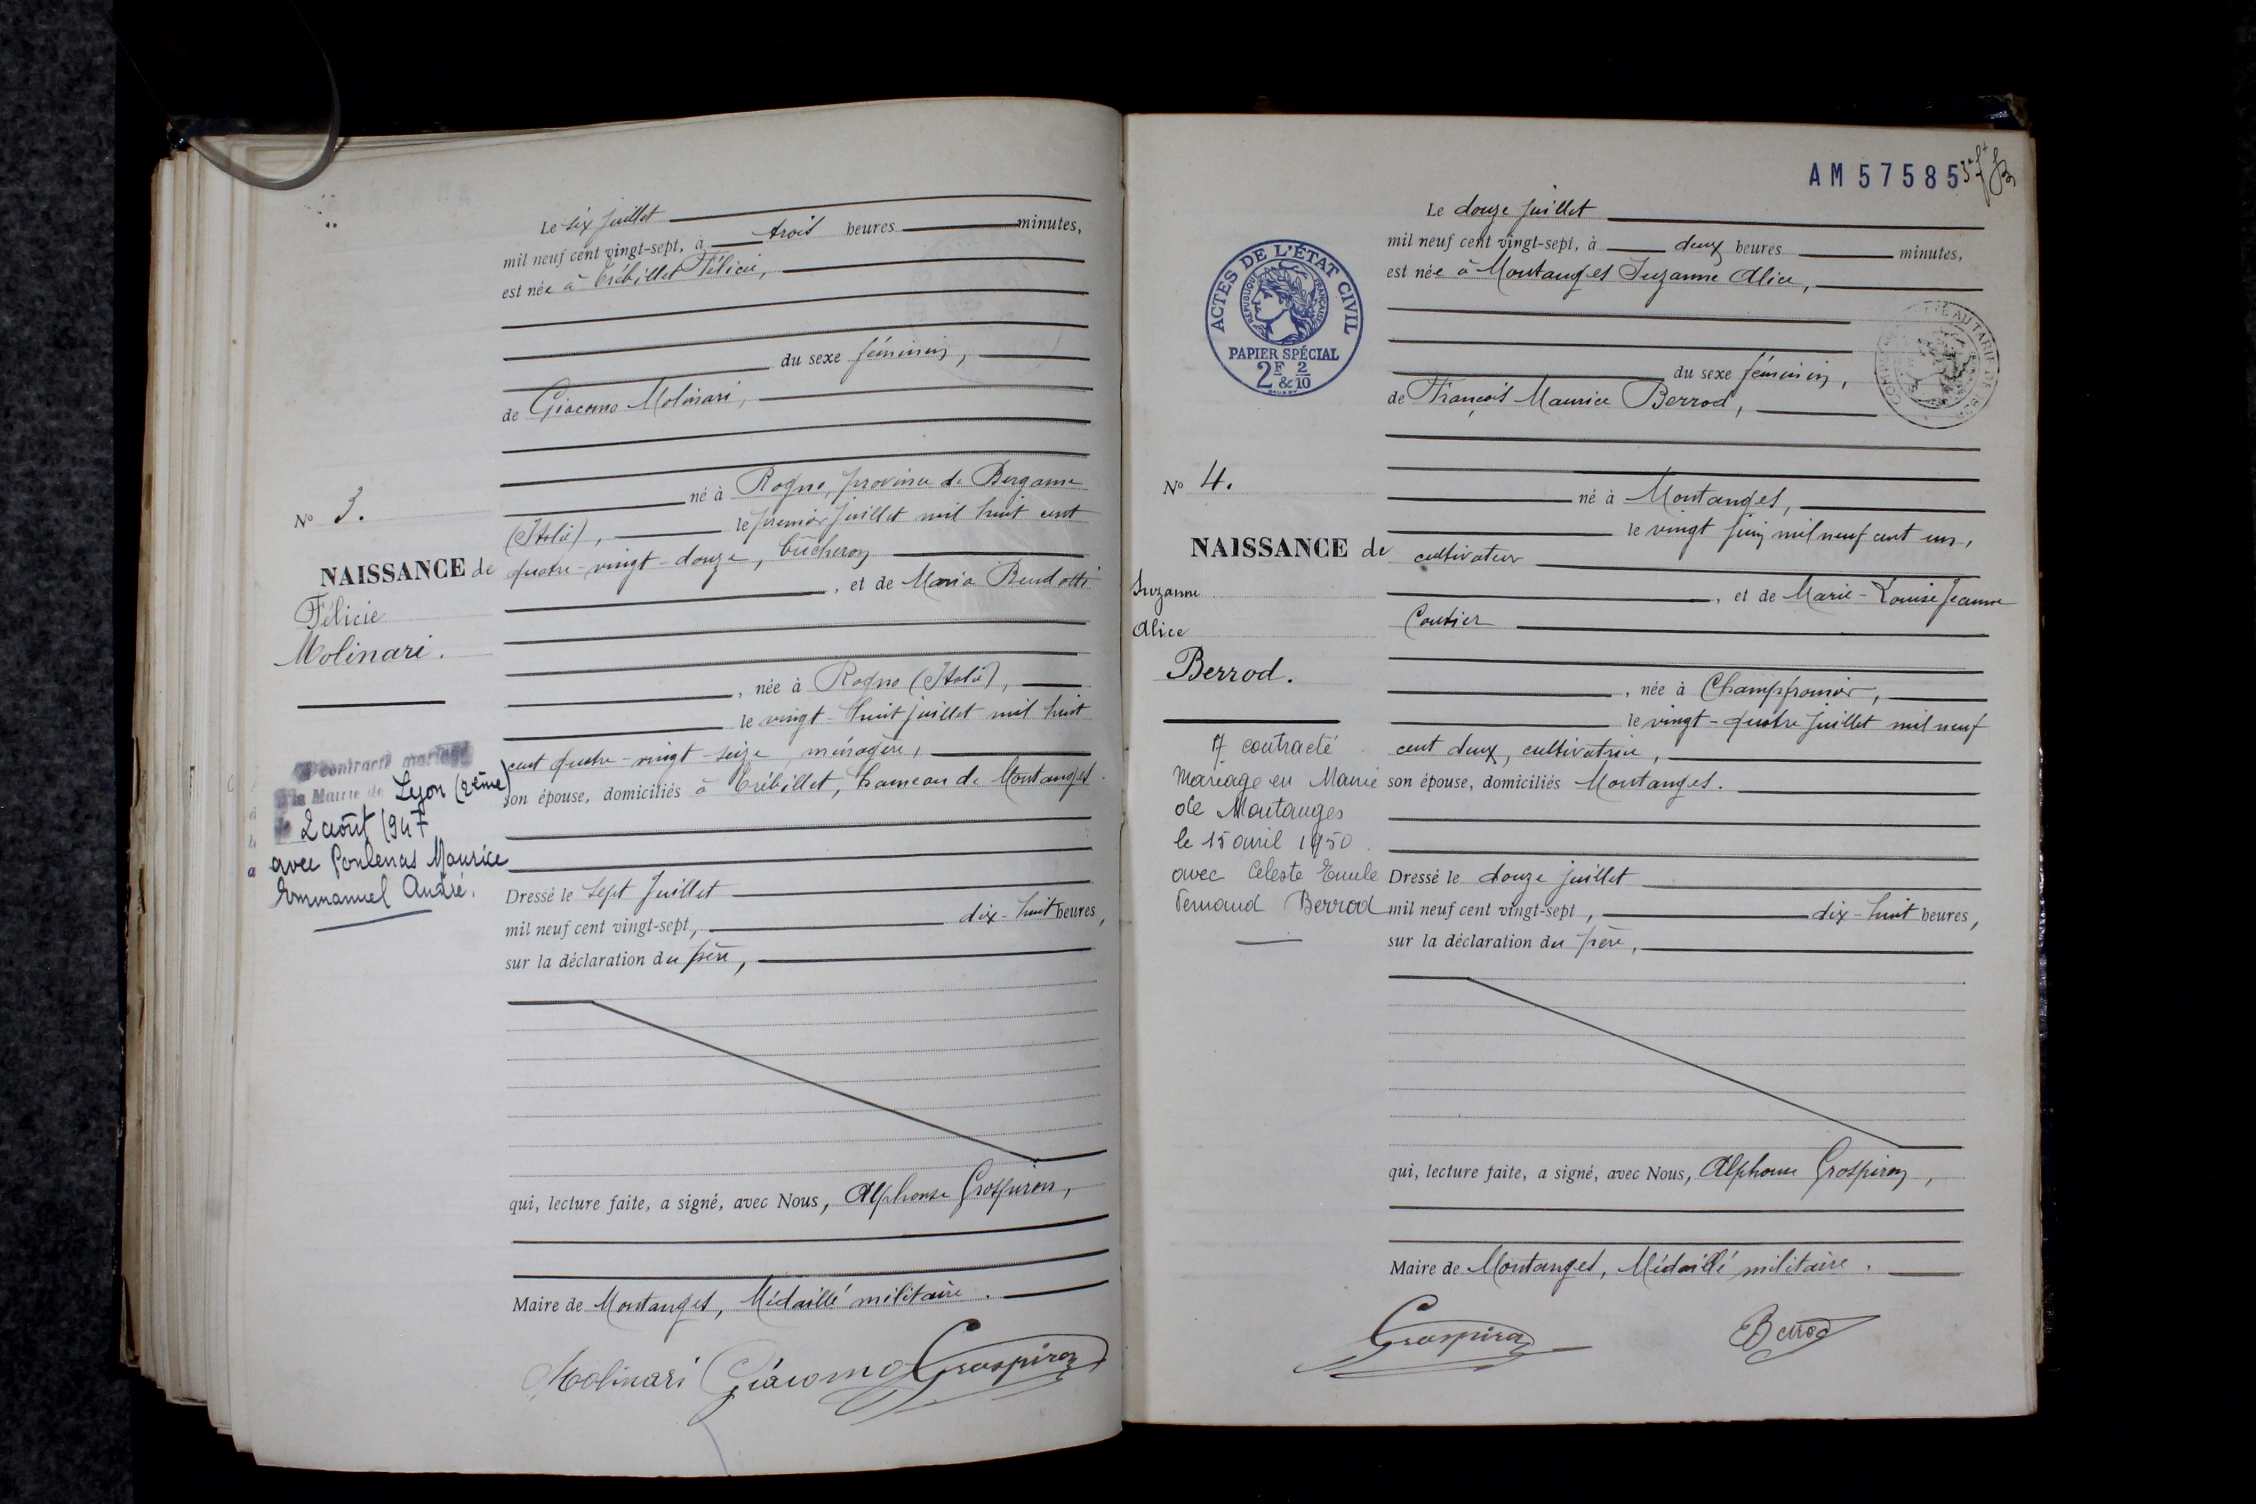 Le six juillet
mil neuf cent vingt-sept, à trois heures minutes,
est née à Trébillet Félicie,
du sexe féminin,
de Giacomo Molinari,
né à Rogno, province de Bergame
(Italie), le premier juillet mil huit cent
quatre-vingt-douze, bûcheron
, et de Maria Bendotti
, née à Rogno (Italie),
le vingt-huit juillet mil huit
cent quatre-vingt-seize, ménagère,
son épouse, domiciliés à Trébillet, hameau de Montanges.
Dressé le sept juillet
mil neuf cent vingt-sept, dix-huit heures,
sur la déclaration du père,
qui, lecture faite, a signé, avec Nous, Alphonse Grospiron,
Maire de Montanges, Médaillé militaire.
Molinari Giacomo Grospiron
No 3.
NAISSANCE de
Félicie
Molinari.
A contracté mariage
à la Mairie de Lyon (2ème)
le 2 août 1947
avec Poulenas Maurice
Emmanuel André.
AM 57585
Le douze juillet
mil neuf cent vingt-sept, à deux heures minutes,
est née à Montanges Suzanne Alice,
du sexe féminin,
de François Maurice Berrod,
né à Montanges,
le vingt juin mil neuf cent un,
cultivateur
, et de Marie-Louise Jeanne
Coutier
, née à Champfromier,
le vingt-quatre juillet mil neuf
cent deux, cultivatrice,
son épouse, domiciliés Montanges.
Dressé le douze juillet
mil neuf cent vingt-sept, dix-huit heures,
sur la déclaration du père,
qui, lecture faite, a signé, avec Nous, Alphonse Grospiron,
Maire de Montanges, Médaillé militaire.
Grospiron Berrod
ACTES DE L'ÉTAT CIVIL
RÉPUBLIQUE FRANÇAISE
PAPIER SPÉCIAL
2F & 2/10
No 4.
NAISSANCE de
Suzanne
Alice
Berrod.
A contracté
Mariage en Mairie
de Montanges
le 15 avril 1950
avec Celeste Emile
Fernand Berrod